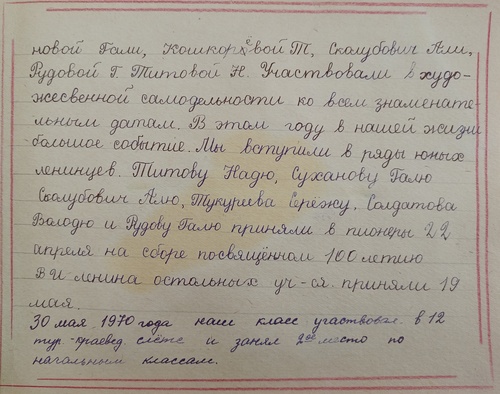 новой Гали, Кошкорёвой Т, Сколубович Али,
Рудовой Г. Титовой Н. Участвовали в худо-
жесвенной самодельности ко всем знаменате-
льным датам. В этом году в нашей жизни
большое событие. Мы вступили в ряды юных
ленинцев. Титову Надю, Суханову Галю
Сколубович Алю, Тукуреева Серёжу, Солдатова
Володю и Рудову Галю приняли в пионеры 22
апреля на сборе посвящённом 100 летию
В И Ленина остальных уч-ся приняли 19
мая.
30 мая 1970 года наш класс участвовал в 12
тур.-краевед. слёте и занял 2ое место по
начальным классам.